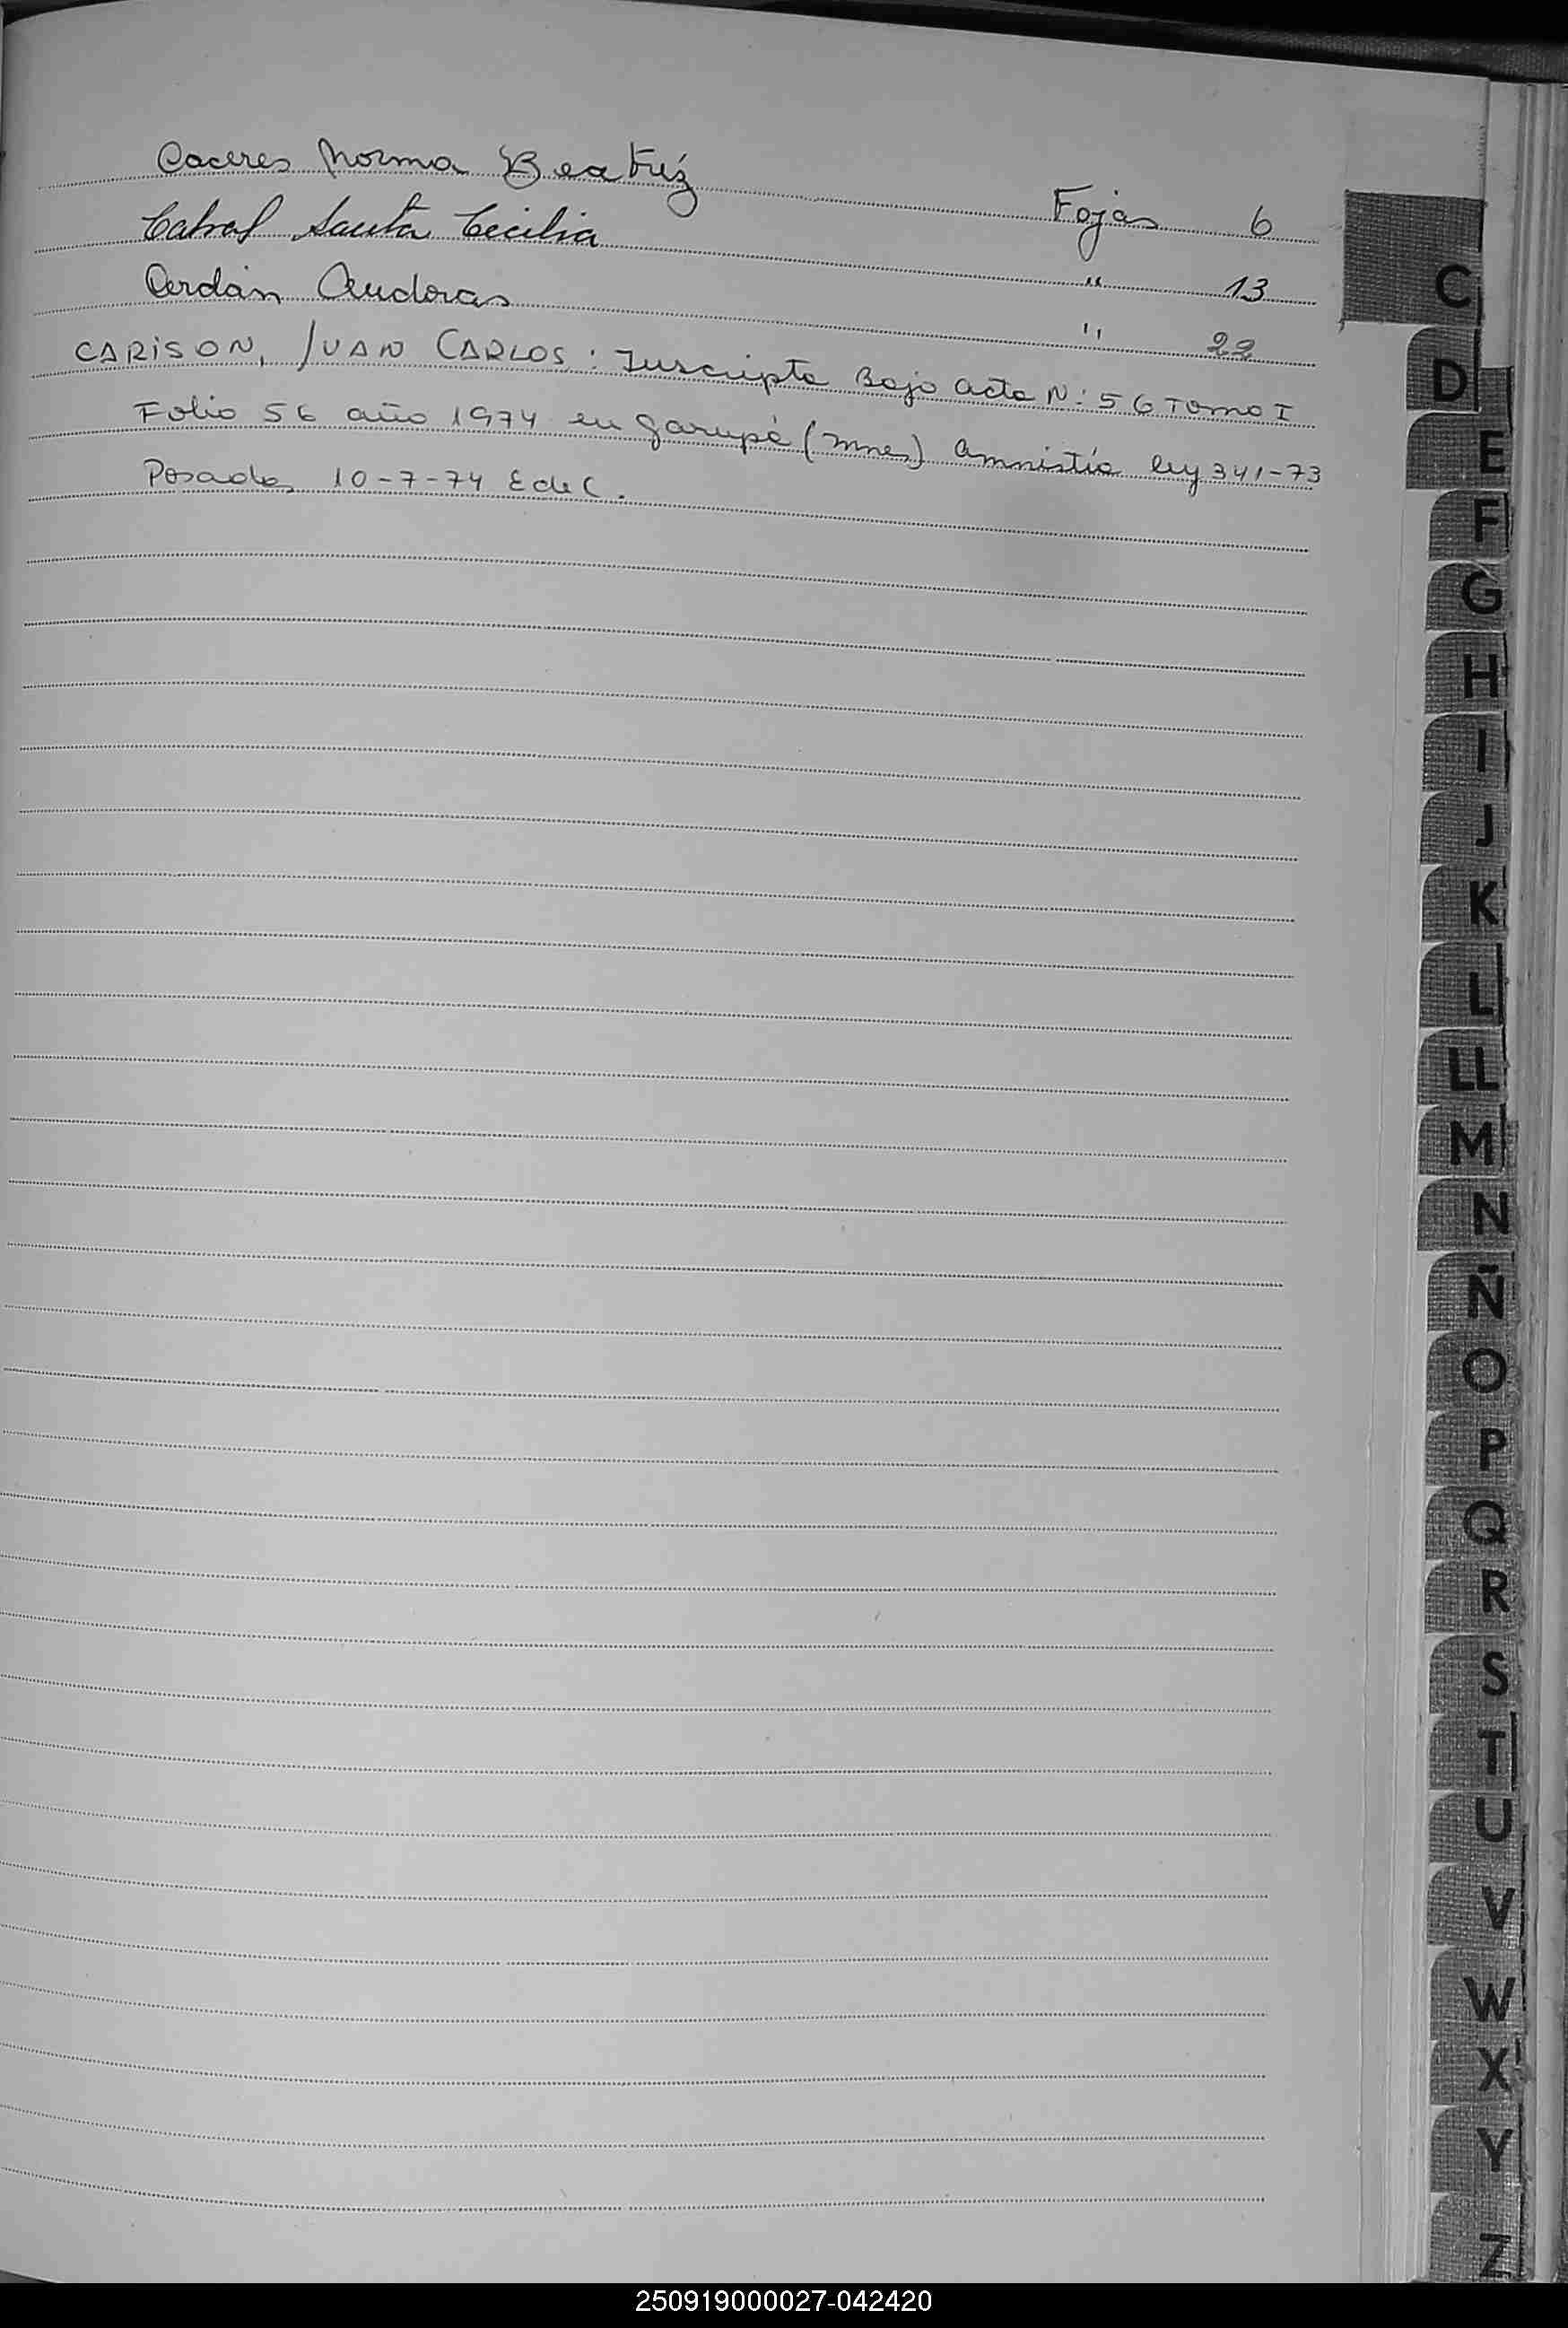 Caceres Norma Beatriz Fojas 6
Cabral Santa Cecilia " 13
Cerdán " 22
CARISON, JUAN CARLOS: Inscripta Bajo acta N: 56 Tomo I
Folio 56 año 1974 en Garupá (Mnes) Amnistía ley 341-73
Posadas 10-7-74 E de C.
C
D
E
F
G
H
I
J
K
L
LL
M
N
Ñ
O
P
Q
R
S
T
U
V
W
X
Y
Z
250919000027-042420